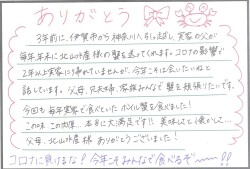 ありがとう
3年前に、伊賀市から神奈川へ引っ越し、実家の父が
毎年年末に北山水産様の蟹を送ってくれます。コロナの影響で
2年以上実家に帰れていませんが、今年こそは会いたいねと
話しています。父母、兄夫婦、家族みんなで蟹を頬張りたいです。
今回も毎年実家で食べていたボイル蟹を食べました!
この味、この肉厚…本当に大満足です!! 美味しくて懐かしくて…
父母、北山水産様ありがとうございました!
コロナに負けるな!今年こそみんなで食べるぞ〜〜!!